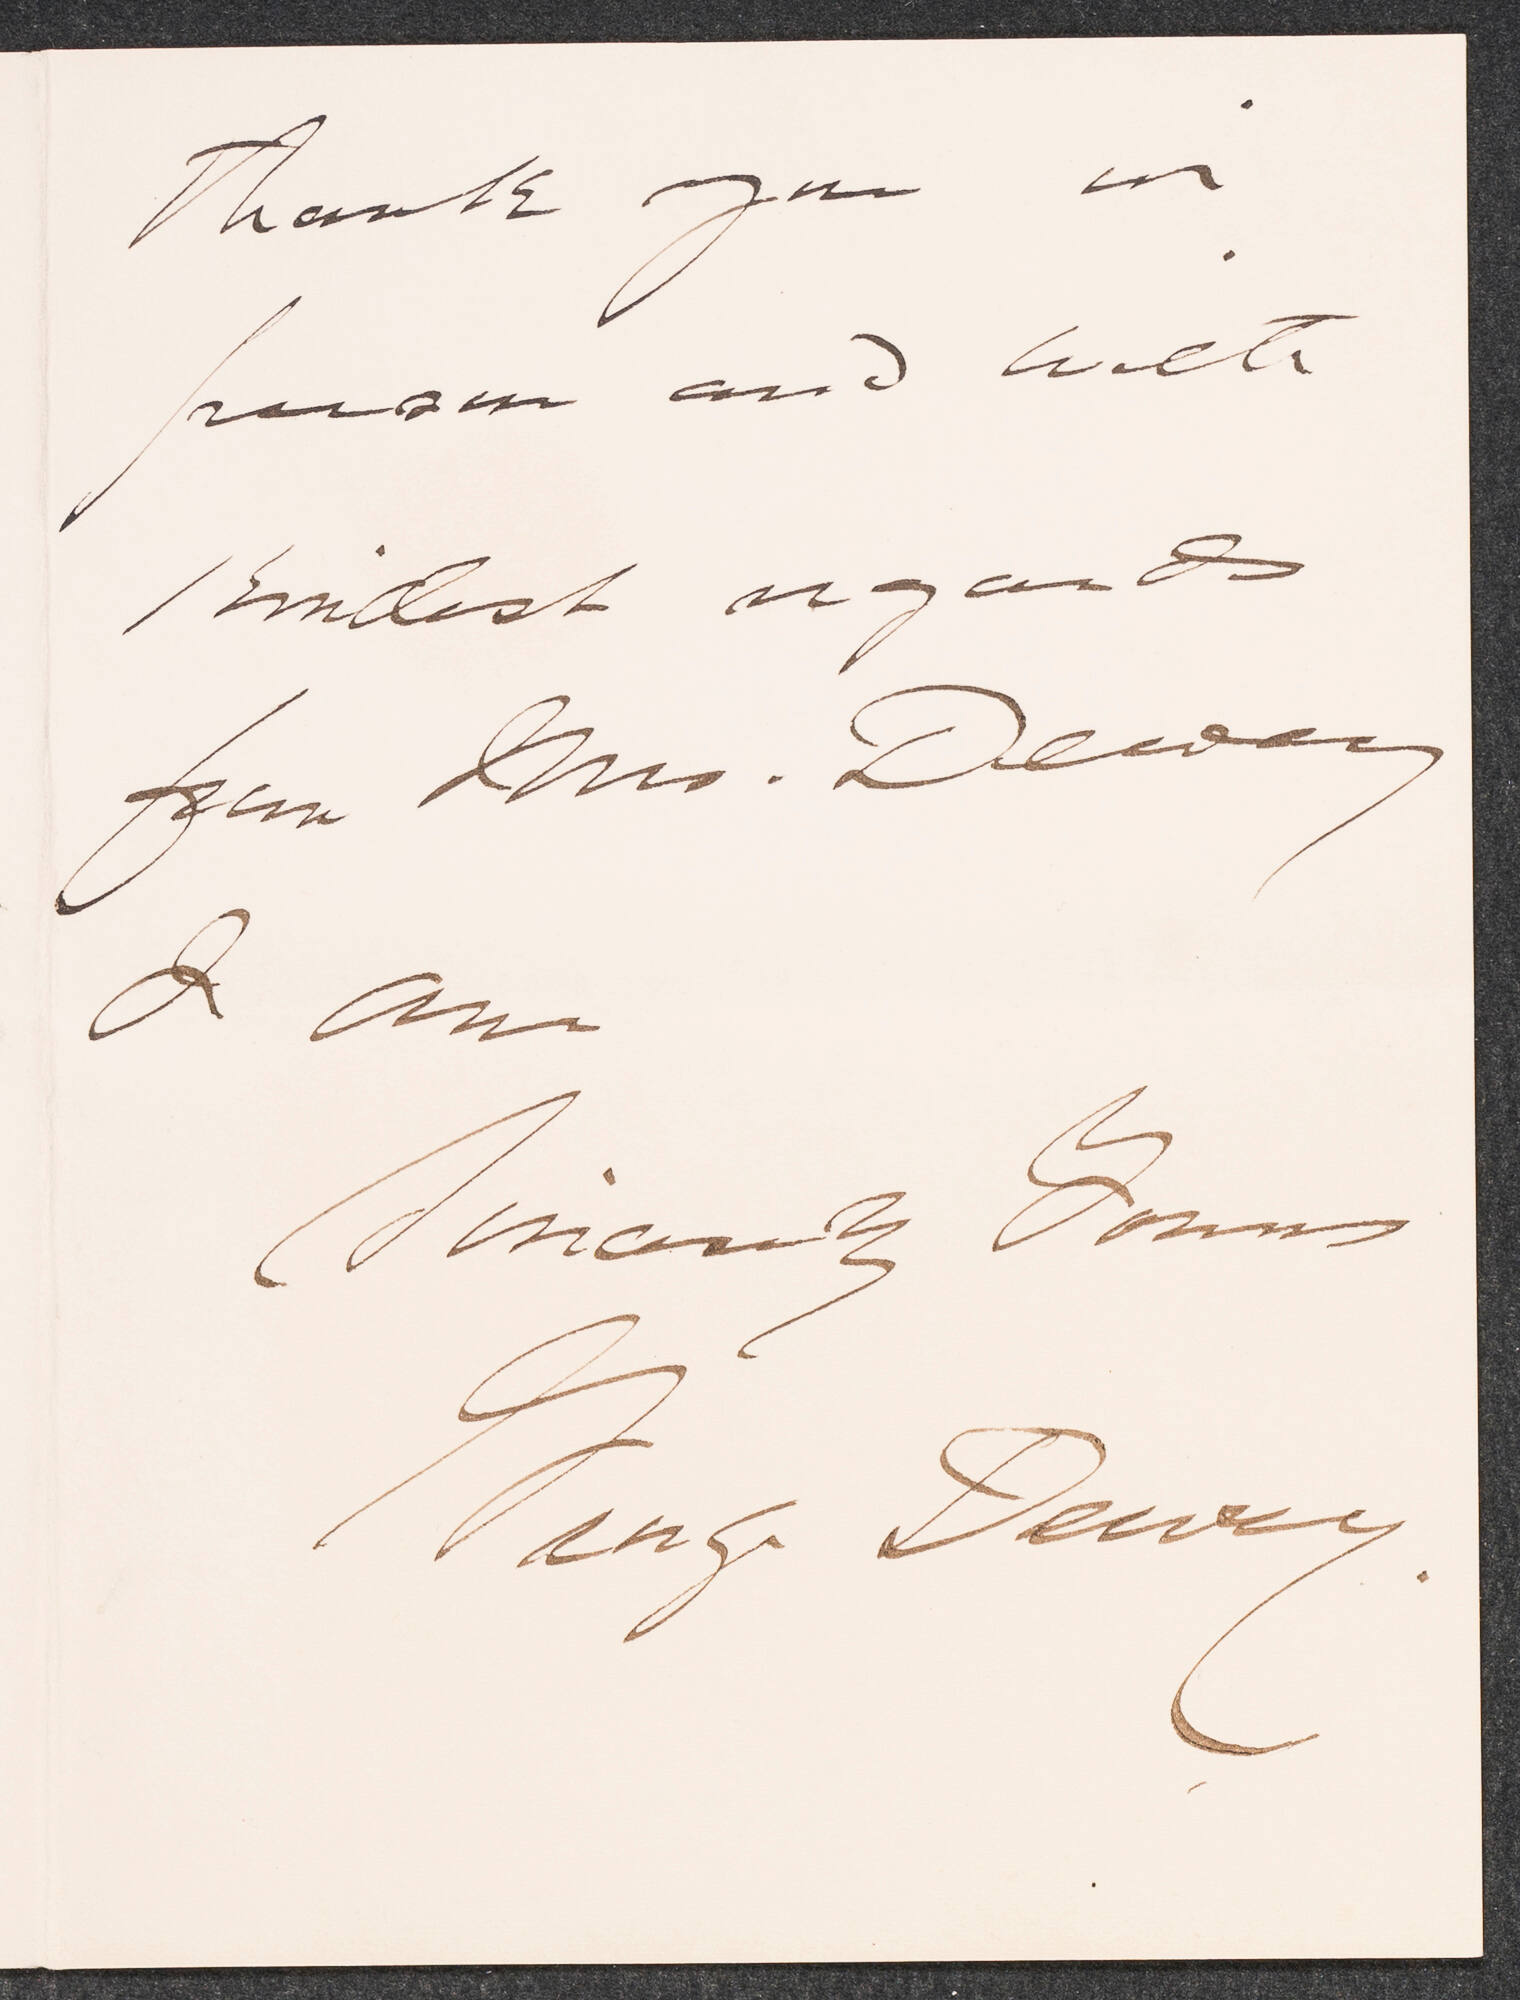 thank you in
person and with
kindest regards
from Mrs. Dewey
I am
Sincerely Yours
George Dewey.